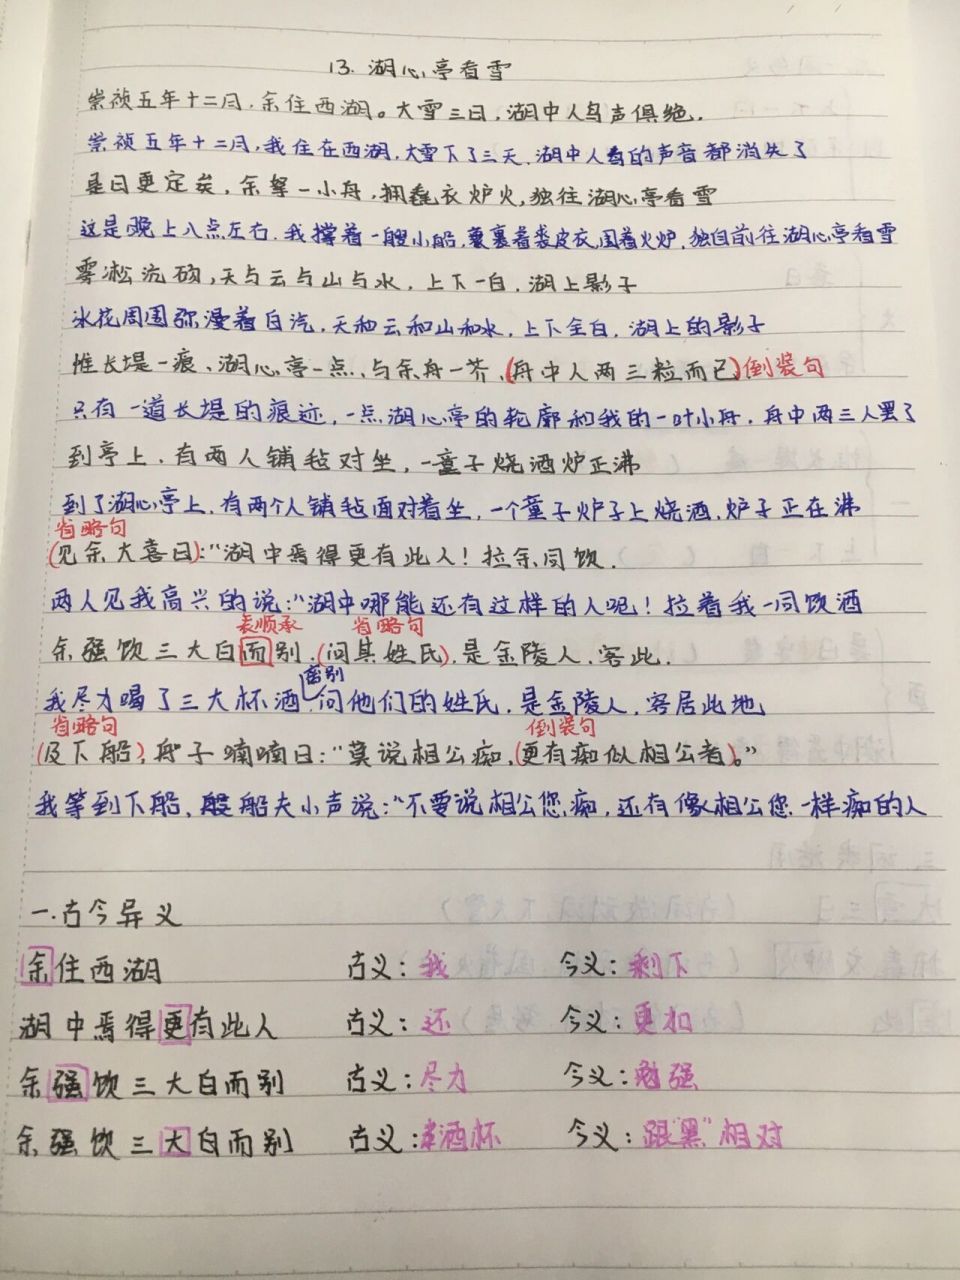 13. 湖心亭看雪
崇祯五年十二月,余住西湖。大雪三日,湖中人鸟声俱绝.
崇祯五年十二月,我住在西湖,大雪下了三天,湖中人鸟的声音都消失了
是日更定矣,余拏一小舟,拥毳衣炉火,独往湖心亭看雪
这是晚上八点左右,我撑着一艘小船,裹裹着裘皮衣,围着火炉,独自前往湖心亭看雪
雾凇沆砀,天与云与山与水,上下一白,湖上影子
冰花周围弥漫着白汽,天和云和山和水,上下全白,湖上的影子
惟长堤一痕、湖心亭一点、与余舟一芥、(舟中人两三粒而已)倒装句
只有一道长堤的痕迹,一点湖心亭的轮廓和我的一叶小舟,舟中两三人罢了
到亭上,有两人铺毡对坐,一童子烧酒炉正沸
到了湖心亭上,有两个人铺毡面对着坐,一个童子炉子上烧酒,炉子正在沸
省略句
(见余大喜曰):"湖中焉得更有此人!拉余同饮.
两人见我高兴的说:"湖中哪能还有这样的人呢!拉着我一同饮酒
表顺承 省略句
余强饮三大白而别,(问其姓氏),是金陵人,客此.
离别
我尽力喝了三大杯酒,问他们的姓氏,是金陵人,客居此地
省略句 倒装句
(及下船),舟子喃喃曰:"莫说相公痴,(更有痴似相公者)。"
我等到下船,船夫小声说:"不要说相公您痴,还有像相公您一样痴的人
一.古今异义
余住西湖 古义:我 今义:剩下
湖中焉得更有此人 古义:还 今义:更加
余强饮三大白而别 古义:尽力 今义:勉强
余强饮三大白而别 古义:酒杯 今义:跟"黑"相对